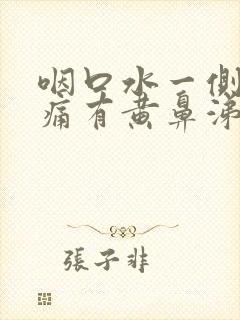 咽口水一侧
痛有黄鼻涕
張子非